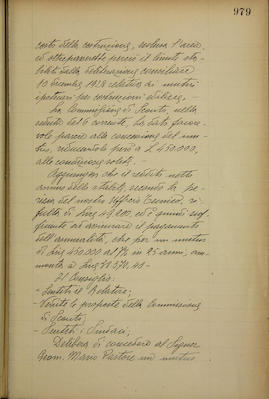 979
costo della costruzione, esclusa l'area,
ed oltrepassando perciò il limite sta-
bilito dalla deliberazione consigliare
10 dicembre 1928 relativa ai mutui
ipotecari per costruzioni edilizie.
La Commissione di Sconto, nella
seduta del 6 corrente, ha dato favore-
vole parere alla concessione del mu-
tuo, riducendolo però a £ 450.000,
alle condizioni solite.
Aggiungesi che il reddito netto
annuo dello stabile, secondo la pe-
rizia del nostro Ufficio Tecnico, ri-
sulta di Lire 49.200, ed è quindi suf-
ficiente ad assicurare il pagamento
dell'annualità, che per un mutuo
di Lire 450.000 al 7% in 25 anni, am-
monta a Lire
Il Consiglio:
- Sentito il Relatore;
- Vedute le proposte della Commissione
di Sconto;
- Sentiti i Sindaci;
Delibera di concedere al Signor
Geom. Mario Pastore un mutuo